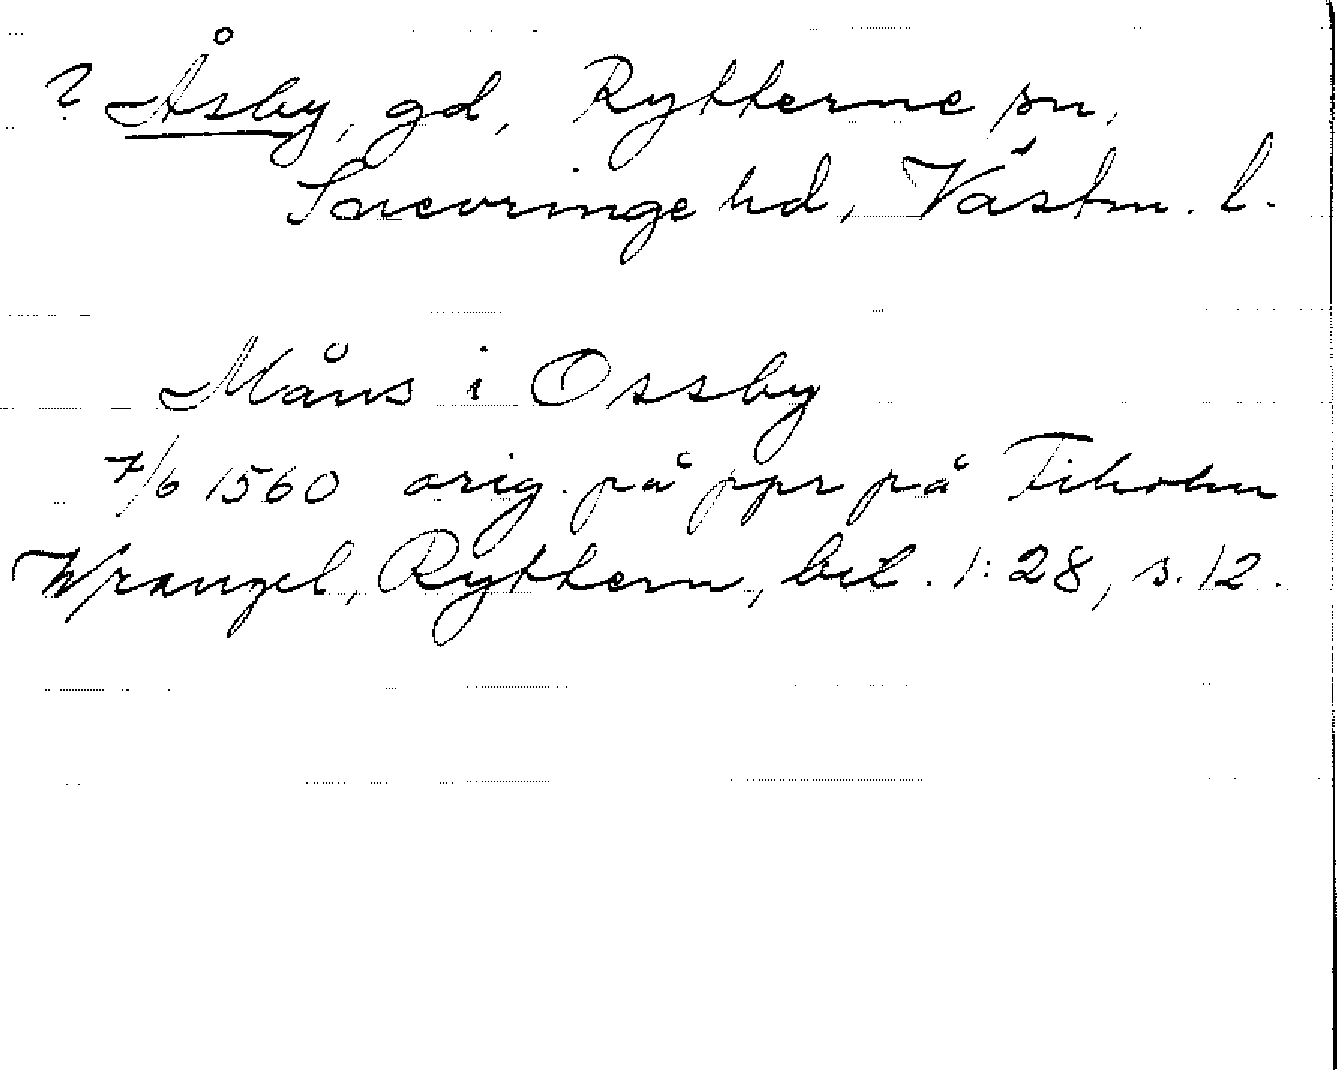 ? Åsby, gd, Rytterne sn,
Snevringe hd, Västm. l.
Måns i Ossby
7/6 1560 orig. på ppr på Tiholm
Wrangel, Ryttern, bil. 1:28, s. 12.